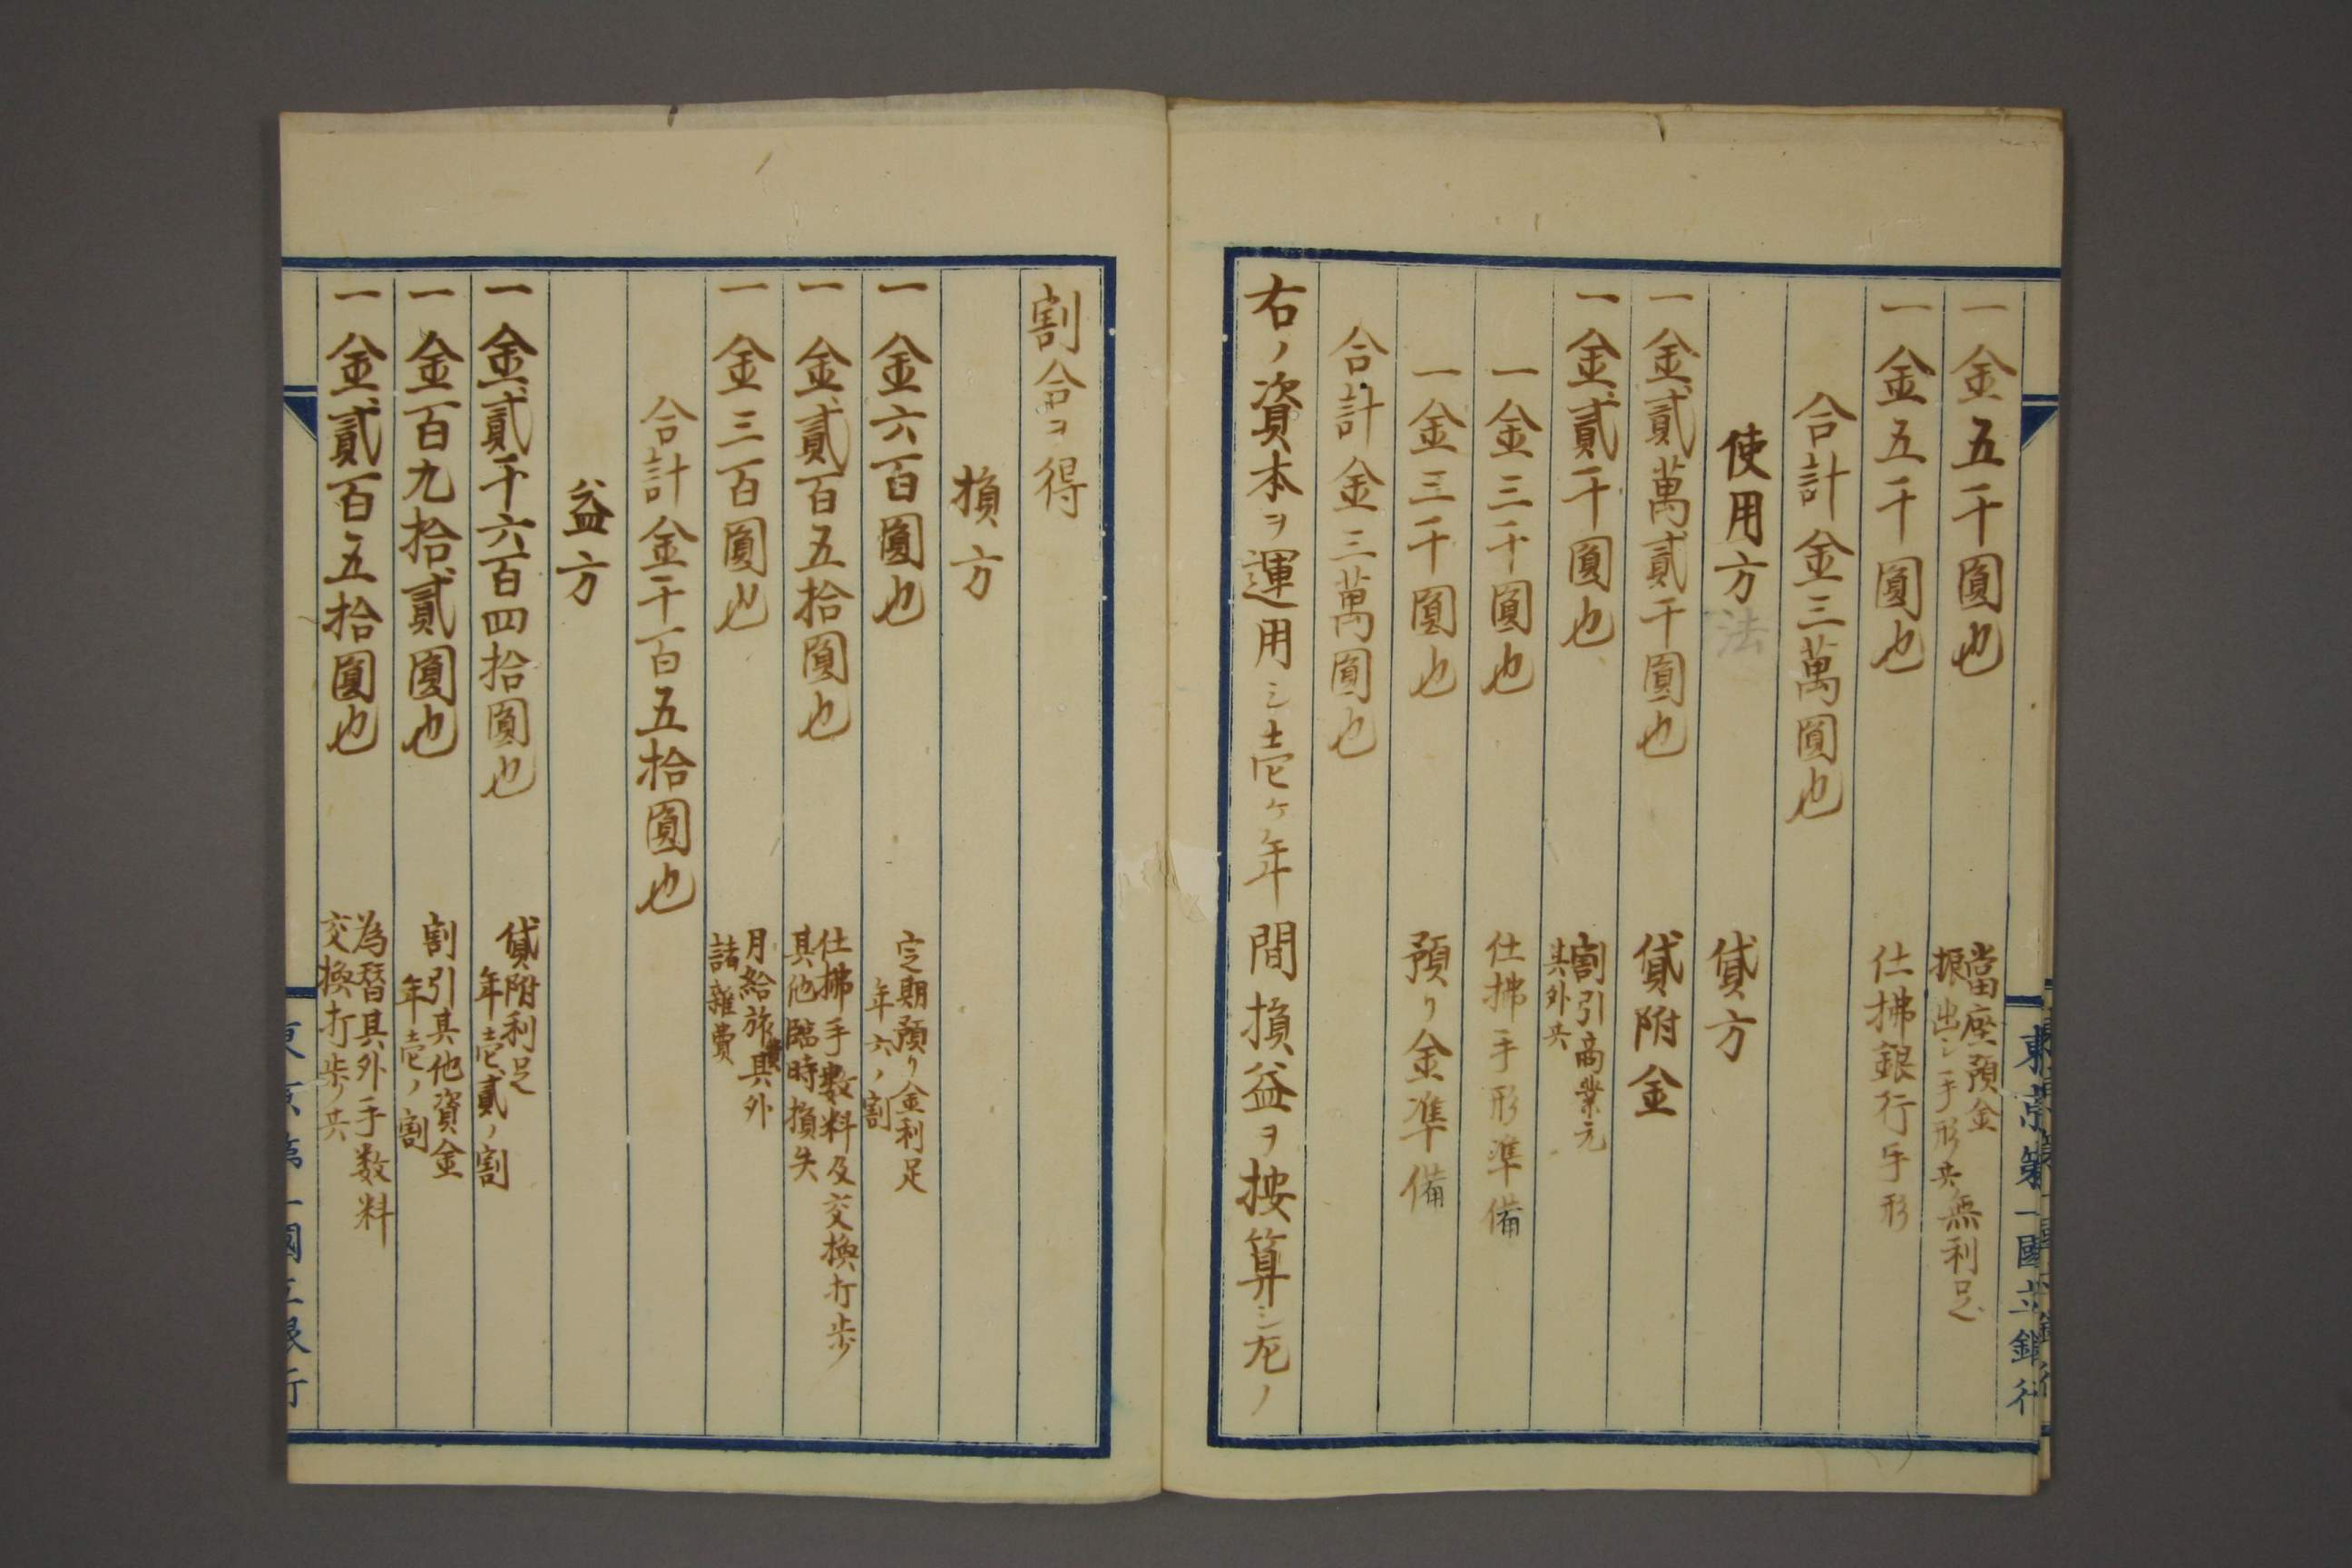 一金五千圓也 當座預金
振出シ手形共無利足
一金五千圓也 仕拂銀行手形
合計金三萬圓也
使用方法 貸方
一金貳萬貳千圓也 貸附金
一金貳千圓也 割引商業元
其外共
一金三千圓也 仕拂手形準備
一金三千圓也 預リ金準備
合計金三萬圓也
右ノ資本ヲ運用シ壱ヶ年間損益ヲ按算シ左ノ
割合ヲ得
損方
一金六百圓也 定期預リ金利足
年六ノ割
一金貳百五拾圓也 仕拂手数料及交換打歩
其他臨時損失
一金三百圓也 月給旅費其外
諸雜費
合計金千百五拾圓也
益方
一金貳千六百四拾圓也 貸附利足
年壱貳ノ割
一金百九拾貳圓也 割引其他資金
年壱ノ割
一金貳百五拾圓也 為替其外手数料
交換打歩共
東京第一國立銀行
東京第一國立銀行